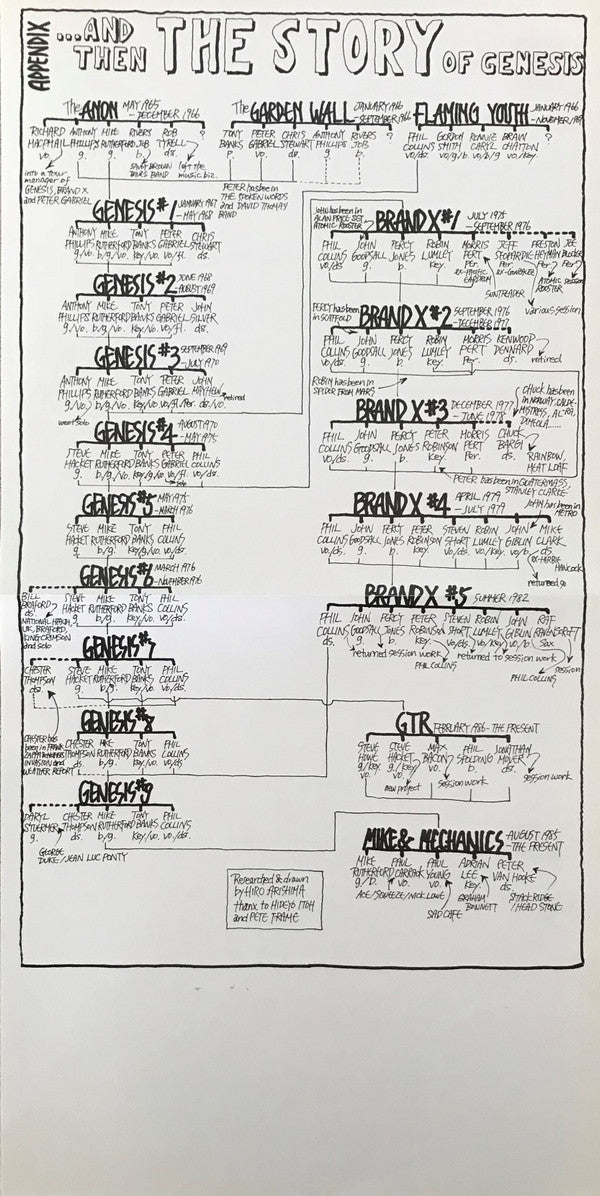 APPENDIX
...AND THEN THE STORY OF GENESIS
The ANON MAY 1965 - DECEMBER 1966
RICHARD MACPHAIL vo.
ANTHONY PHILLIPS g.
MIKE RUTHERFORD g.
RIVERS JOB b.
ROB TYRELL ds.
?
into a tour manager of GENESIS, BRAND X and PETER GABRIEL
SAVOY BROWN BLUES BAND
left the music biz.
The GARDEN WALL JANUARY 1966 - SEPTEMBER 1966
TONY BANKS p.
PETER GABRIEL vo.
CHRIS STEWART ds.
ANTHONY PHILLIPS g.
RIVERS JOB b.
?
PETER has been in THE SPOKEN WORDS and DAVID THOMAY BAND
FLAMING YOUTH JANUARY 1966 - NOVEMBER
PHIL COLLINS vo/ds.
GORDON SMITH vo/g/b
RONNIE CARYL vo/b/g
BRIAN CHATTON vo/key.
?
GENESIS #1 JANUARY 1967 - MAY 1968
ANTHONY PHILLIPS g./vo.
MIKE RUTHERFORD b/g.
TONY BANKS key/vo.
PETER GABRIEL vo/fl.
CHRIS STEWART ds.
GENESIS #2 JUNE 1968 - AUGUST 1969
ANTHONY PHILLIPS g./vo.
MIKE RUTHERFORD b/g./vo.
TONY BANKS key/vo.
PETER GABRIEL vo/fl.
JOHN SILVER ds.
GENESIS #3 SEPTEMBER 1969 - JULY 1970
ANTHONY PHILLIPS g./vo.
MIKE RUTHERFORD b/g./vo.
TONY BANKS key/vo
PETER GABRIEL vo/fl./Per.
JOHN MAYHEW ds./vo.
retired
went solo
GENESIS #4 AUGUST 1970 - MAY 1975
STEVE HACKET g.
MIKE RUTHERFORD b/g./vo.
TONY BANKS key/g./vo.
PETER GABRIEL vo/fl.
PHIL COLLINS vo/ds.
solo
GENESIS #5 MAY 1975 - MARCH 1976
STEVE HACKET g.
MIKE RUTHERFORD b/g.
TONY BANKS key/g/vo.
PHIL COLLINS vo/ds.
GENESIS #6 MARCH 1976 - NOVEMBER 1976
BILL BRAFORD ds.
STEVE HACKET g.
MIKE RUTHERFORD b/g.
TONY BANKS key/vo.
PHIL COLLINS vo/ds.
NATIONAL HEALTH, UK, BRAFORD, KING CRIMSON and solo
GENESIS #7
CHESTER THOMPSON ds.
STEVE HACKET g.
MIKE RUTHERFORD b/g.
TONY BANKS key/vo.
PHIL COLLINS vo/ds.
GENESIS #8
CHESTER THOMPSON ds.
MIKE RUTHERFORD b/g.
TONY BANKS key/vo.
PHIL COLLINS vo/ds.
CHESTER has been in FRANK ZAPPA and WEATHER REPORT
GENESIS #9
DARYL STUERMER g.
CHESTER THOMPSON ds.
MIKE RUTHERFORD b/g.
TONY BANKS key/vo.
PHIL COLLINS vo/ds.
GEORGE DUKE/JEAN LUC PONTY
JOHN has been in ALAN PRICE SET ATOMIC ROOSTER
BRAND X #1 JULY 1975 - SEPTEMBER 1976
PHIL COLLINS vo/ds.
JOHN GOODSALL g.
PERCY JONES b.
ROBIN LUMLEY key.
MORRIS PERT Per.
JEFF Per.
PRESTON HEYMAN Per.
JOE BLOCKER
SUNTREADER
ATOMIC ROOSTER
session
various session
PERCY has been in SCAFFOLD
BRAND X #2 SEPTEMBER 1976 - DECEMBER 1977
PHIL COLLINS vo/ds.
JOHN GOODSALL g.
PERCY JONES b.
ROBIN LUMLEY key.
MORRIS PERT Per.
KENWOOD DENNARD ds.
retired
ROBIN has been in SPIDER FROM MARS
BRAND X #3 DECEMBER 1977 - JUNE 1978
CHUCK has been in
PHIL COLLINS vo/ds.
JOHN GOODSALL g.
PERCY JONES b.
PETER ROBINSON key.
MORRIS PERT Per.
CHUCK BURGI ds.
RAINBOW, MEAT LOAF
PETER has been in QUATERMASS STANLEY CLARKE
BRAND X #4 APRIL 1979 - JULY 1979
JOHN has been in METRO
PHIL COLLINS vo/ds.
JOHN GOODSALL g.
PERCY JONES b.
PETER ROBINSON key.
STEVEN SHORT vo/ds.
ROBIN LUMLEY vo/key
JOHN GIBLIN b.
MIKE CLARK ds
ex-HERBIE HANCOCK
returned
BRAND X #5 SUMMER 1982
PHIL COLLINS ds.
JOHN GOODSALL g.
PERCY JONES b.
PETER ROBINSON key.
STEVEN SHORT vo/ds.
ROBIN LUMLEY vo/key
JOHN GIBLIN b.
RAF RAVENSCROFT Sax
returned session work
PHIL COLLINS
returned to session work
session
PHIL COLLINS
GTR FEBRUARY 1986 - THE PRESENT
STEVE HOWE g/key. vo.
STEVE HACKET g/key vo.
MAX BACON vo.
PHIL SPALDING b.
JONATHAN MOVER ds.
new project
session work
session work
MIKE & MECHANICS AUGUST 1985 - THE PRESENT
MIKE RUTHERFORD g/b.
PAUL CARRACK vo.
PAUL YOUNG vo.
ADRIAN LEE key.
PETER VAN HOOKE ds.
ACE/SQUEEZE/NICK LOWE
SAD CAFE
GRAHAM BONNETT
STACKRIDGE/HEAD STONE
Researched & drawn
by HIRO ARISHIMA
thanx to HIDEYO ITOH
and PETE FRAME